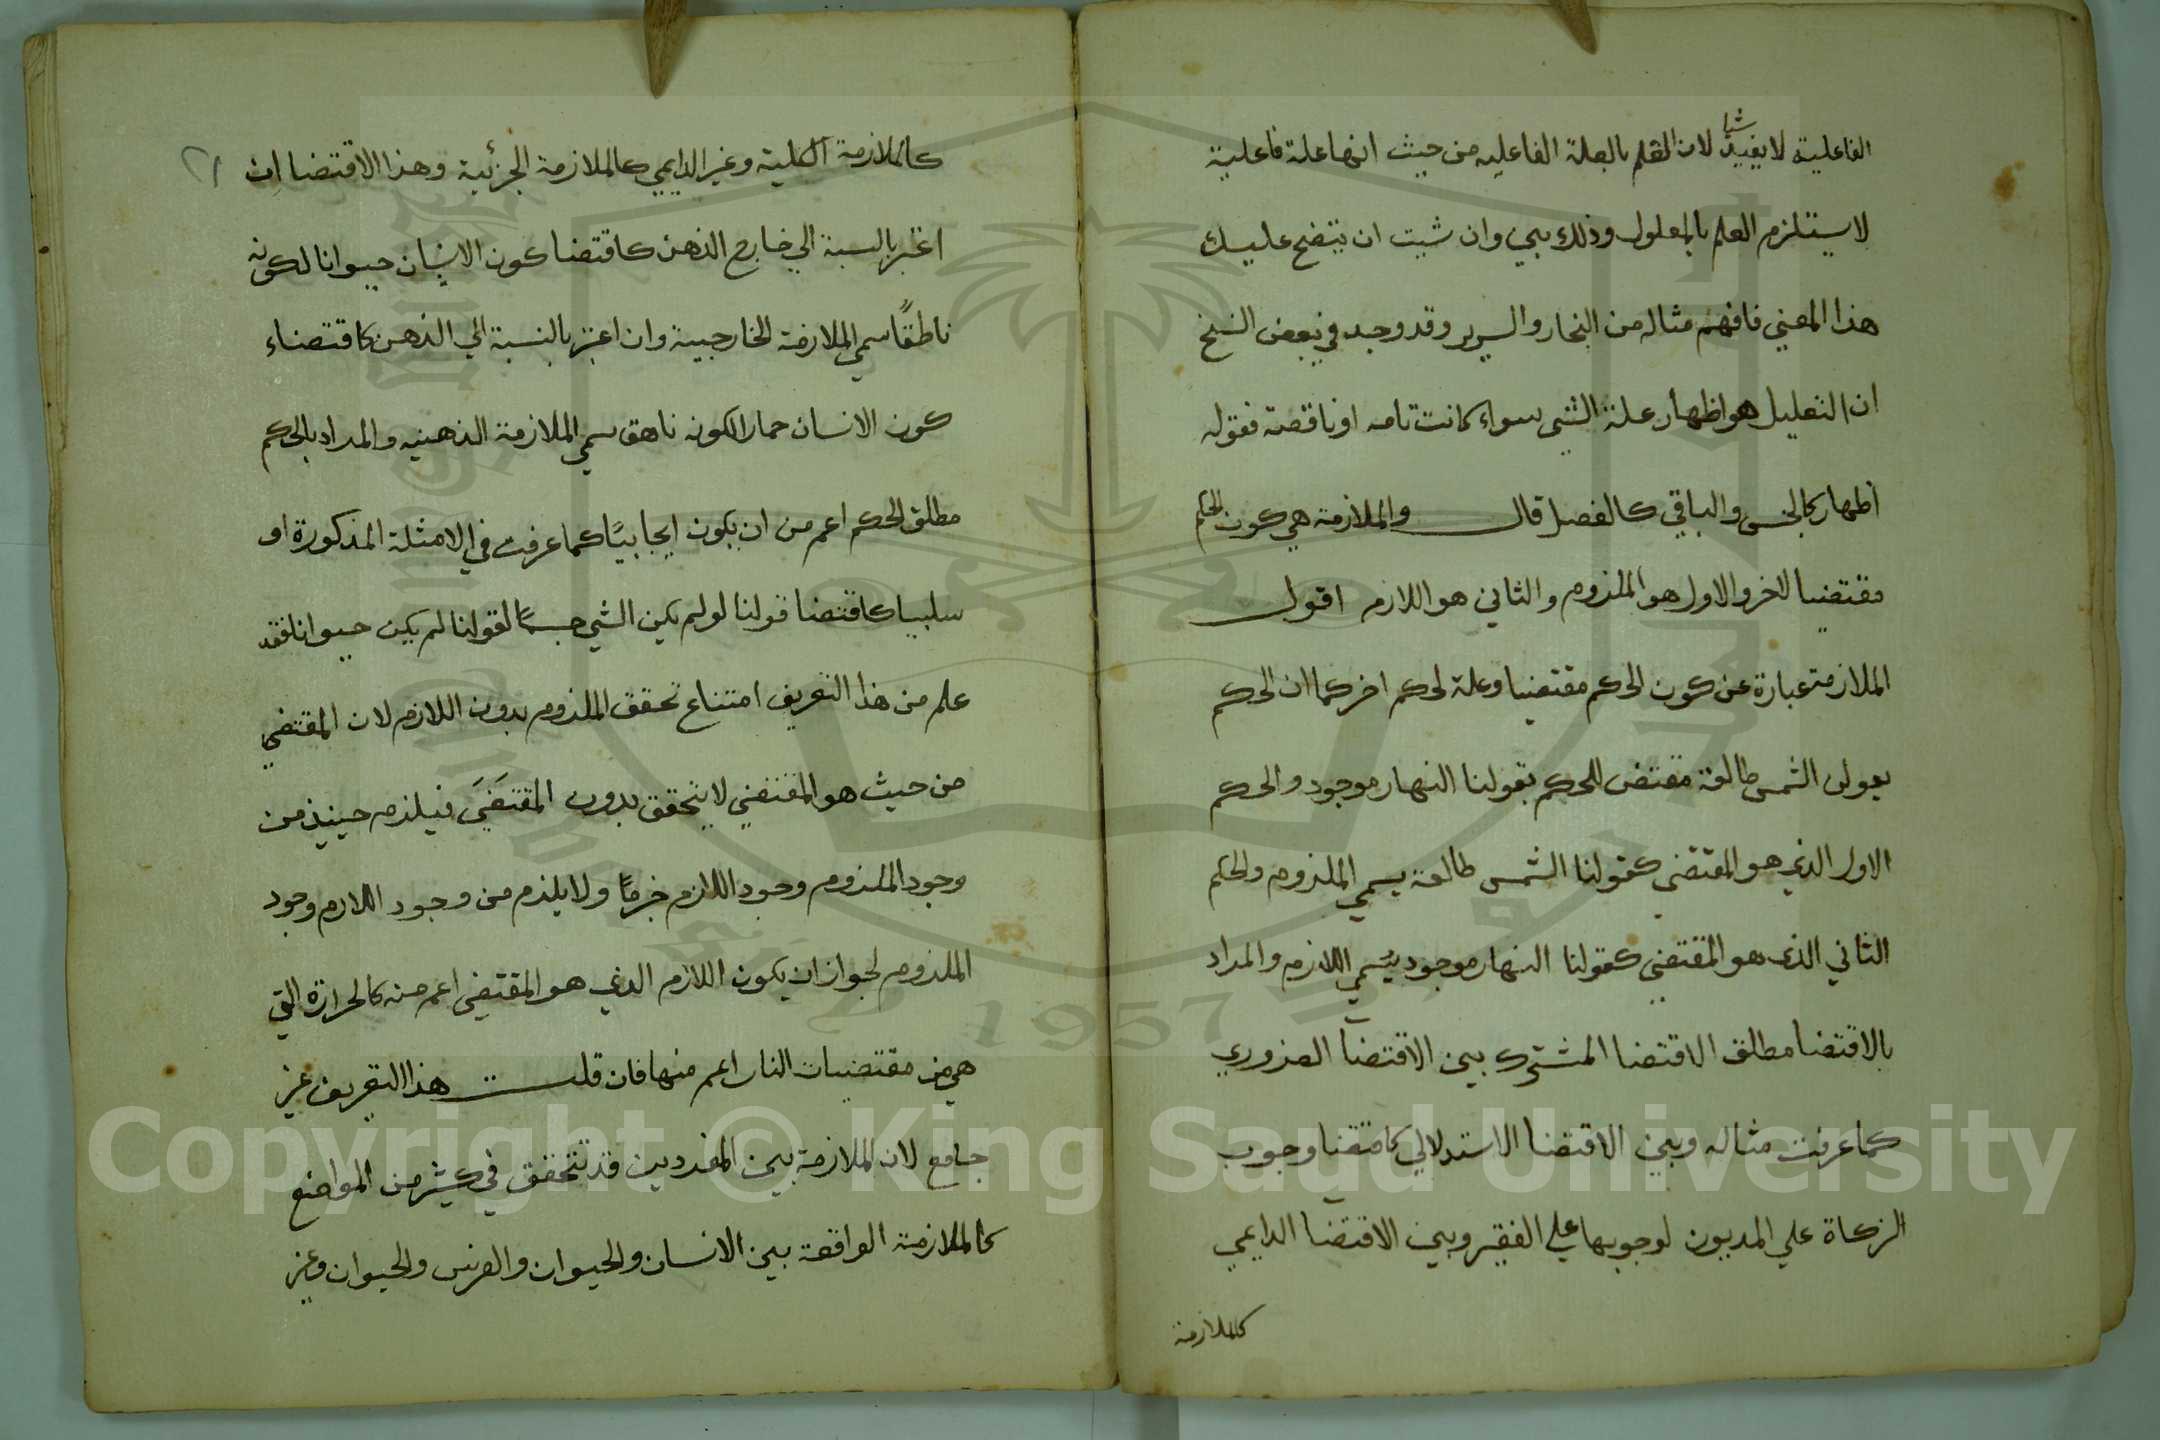 الفاعلية لا يفيد شيا لان العلم بالعلة الفاعليه من حيث انها علة فاعلية
لا يستلزم العلم بالمعلول وذلك بين وان شيت ان يتضح عليك
هذا المعني فافهم مثاله من النجار والسرير وقد وجد في بعض النسخ
ان التعليل هو اظهار علة الشي سواء كانت تامه او ناقصة فقوله
اظهار كالجنس والباقي كالفصل قال والملازمة هي كون الحكم
مقتضيا لاخر والاول هو الملزوم والثاني هو اللازم اقول
الملازمة عبارة عن كون الحكم مقتضيا وعلة لحكم اخر كما ان الحكم
بقولن الشمس طالعة مقتض للحكم بقولنا النهار موجود والحكم
الاول الذي هو المقتضي كقولنا الشمس طالعة يسمي الملزوم والحكم
الثاني الذي هو المقتضي كقولنا النهار موجود يسمي اللازم والمراد
بالاقتضا مطلق الاقتضا المشترك بين الاقتضا الضروري
كما عرفت مثاله وبين الاقتضا الاستدلالي كاقتضا وجوب
الزكاة علي المديون لوجوبها علي الفقير وبين الاقتضا الدايمي
كالملازمة
٢١
كالملازمة الكلية وغير الدايمي كالملازمة الجزئية وهذا الاقتضا ان
اعتبر بالنسبة الي خارج الذهن كاقتضا كون الانسان حيوانا لكونه
ناطقًا سمي الملازمة الخارجية وان اعتبر بالنسبة الي الذهن كاقتضاء
كون الانسان حمارا لكونه ناهق سمي الملازمة الذهنيه والمراد بالحكم
مطلق الحكم اعم من ان يكون ايجابيًا كما عرفت في الامثلة المذكورة او
سلبيا كاقتضا قولنا لو لم يكن الشي جسمًا لقولنا لم يكن حيوانا فقد
علم من هذا التعريف امتناع تحقق الملزوم بدون اللازم لان المقتضي
من حيث هو المقتضي لا يتحقق بدون المقتضَي فيلزم حينيذ من
وجود الملزوم وجود اللازم جزمًا ولا يلزم من وجود اللازم وجود
الملزوم لجواز ان يكون اللازم الذي هو المقتضي اعم منه كالحرارة التي
هي من مقتضيات النار اعم منها فان قلت هذا التعريف غير
جامع لان الملازمة بين المفردين قد تتحقق في كثير من المواضع
كالملازمة الواقعة بين الانسان والحيوان والفرس والحيوان وغير
Copyright © King Saud University
1957